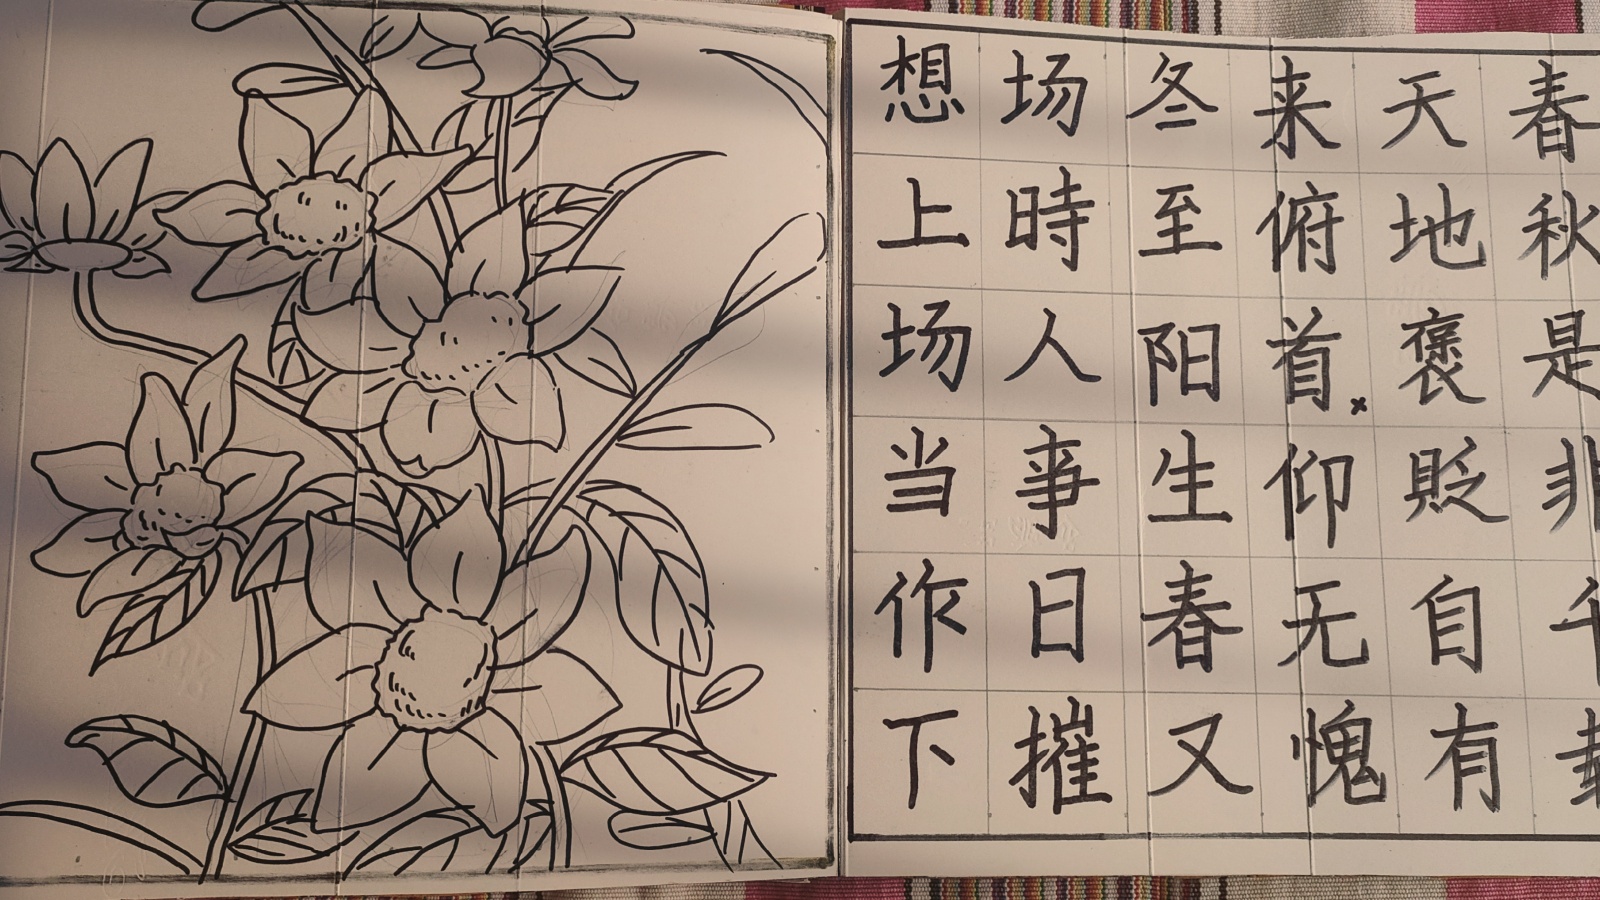 想上场当作下
场時人事日摧
冬至阳生春又
来俯首仰无愧
天地褒貶自有
春秋是非